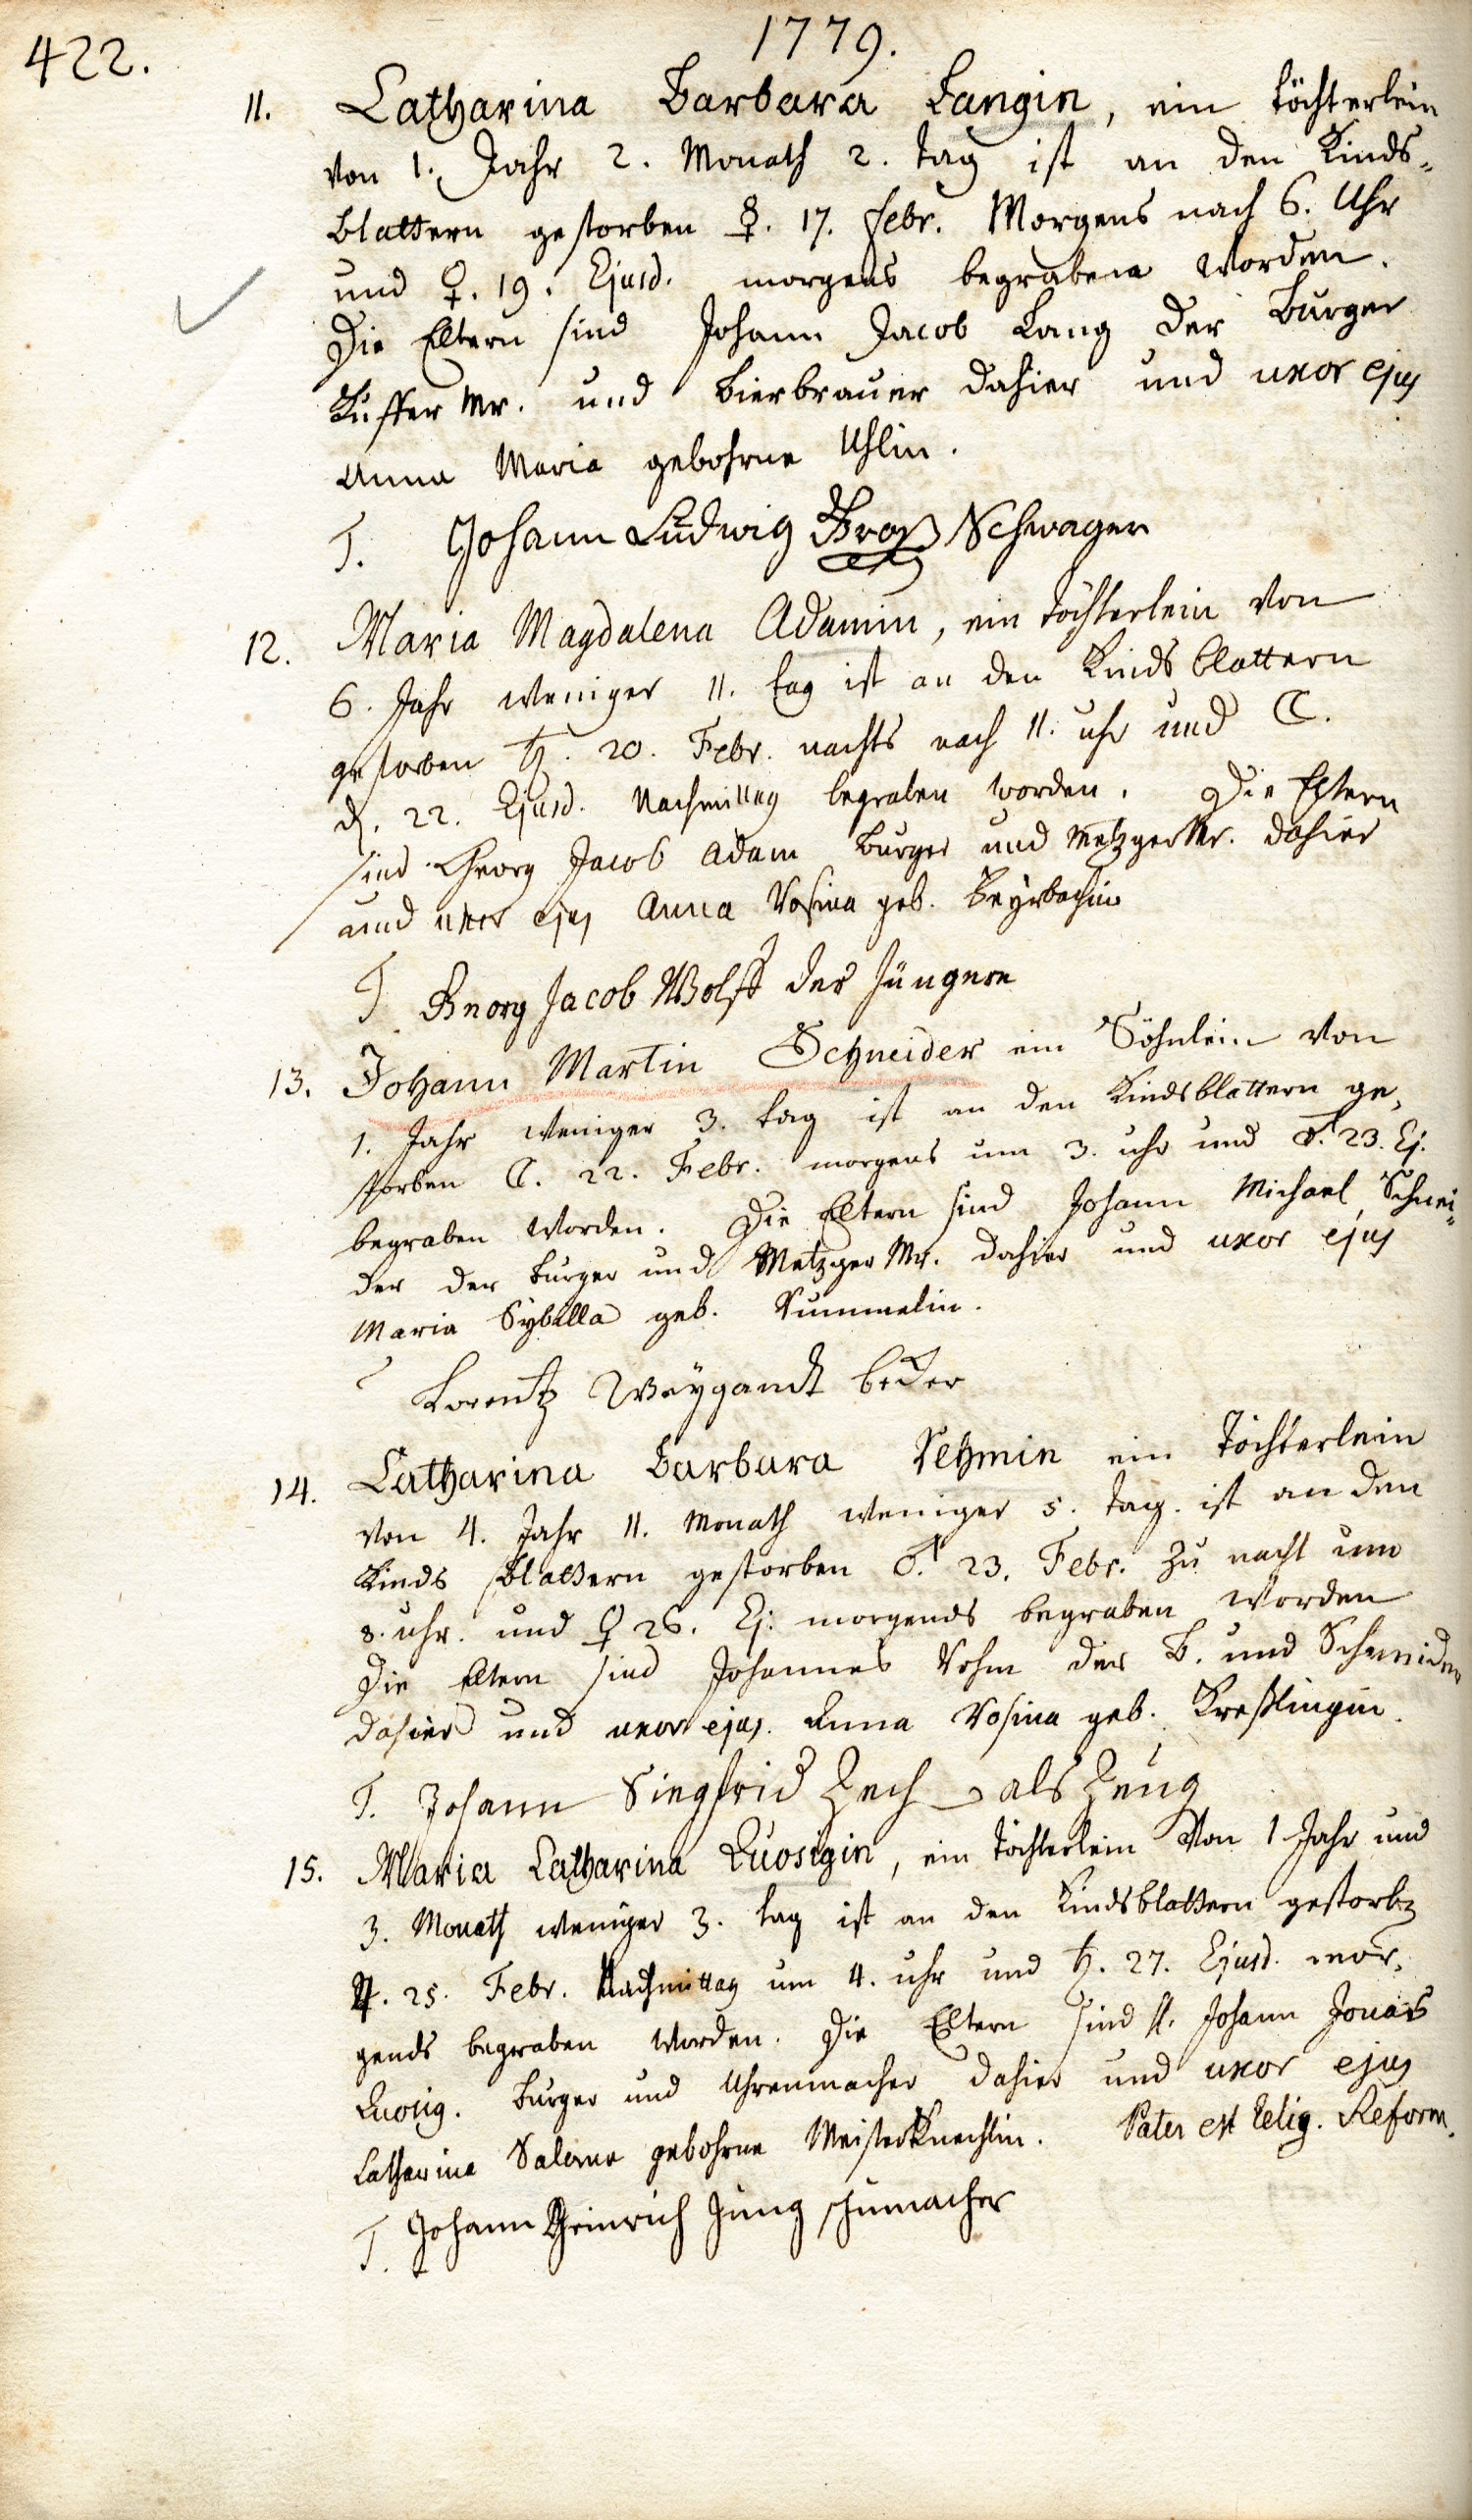 422.
1779.
11. Catharina Barbara Langin, ein töchterlein
von 1. Jahr 2. Monath 2. tag ist an den Kinds-
blattern gestorben ☿. 17. febr. Morgens nach 6. Uhr
und ♀. 19. Ejusd. morgens begraben worden.
Die Eltern sind Johann Jacob Lang der burger
Küffer Mr. und bierbrauer dahier und uxor ejus
Anna Maria gebohrne Uhlin.
T. Johann Ludwig Groß Schwager
12. Maria Magdalena Adamin, ein töchterlein von
6. Jahr weniger 11. tag ist an den Kindsblattern
gestorben ♄. 20. Febr. nachts nach 11. uhr und ☾.
d. 22. Ejusd. Nachmittag begraben worden. Die Eltern
sind Georg Jacob Adam burger und Metzger Mr. dahier
und uxor ejus Anna Rosina geb. Beyrbachin
T. Georg Jacob Wolff der Jüngere
13. Johann Martin Schneider ein Söhnlein von
1. Jahr weniger 3. tag ist an den Kindsblattern ge-
storben ☾. 22. Febr. morgens um 3. uhr und ♂. 23. Ej.
begraben worden. Die Eltern sind Johann Michael Schnei-
der der burger und Metzger Mr. dahier und uxor ejus
Maria Sybilla geb. Rummelin.
Lorentz Weygandt becker
14. Catharina Barbara Rehmin ein Töchterlein
von 4. Jahr 11. Monath weniger 5. tag. ist an den
Kinds blattern gestorben ♂. 23. Febr. zu nacht um
8. uhr. und ♀ 26. Ej. morgends begraben worden
Die Eltern sind Johannes Rehm der B. und Schneider
dahier und uxor ejus. Anna Rosina geb. Kreßlingin.
T. Johann Siegfrid Zech als Zeug
15. Maria Catharina Quosigin, ein töchterlein von 1 Jahr und
3. Monath weniger 3. tag ist an den Kindsblattern gestorben
♃. 25. Febr. Nachmittag um 4. uhr und ♄. 27. Ejusd. mor-
gends begraben worden. Die Eltern sind H. Johann Jonas
Quosig. burger und Uhrenmacher dahier und uxor ejus
Catharina Salome gebohrne Meisterknechtin. Pater est relig. Reform.
T. Johann Heinrich Jung schumacher